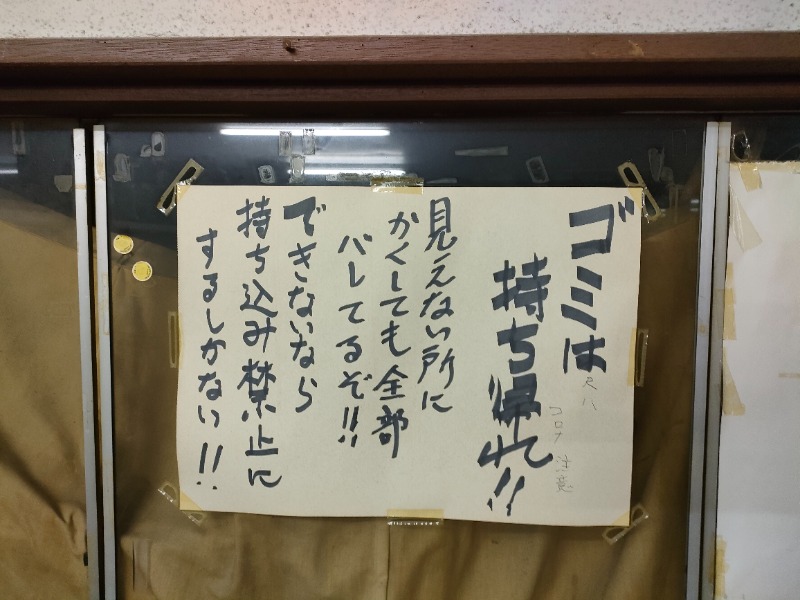 ゴミは
持ち帰れ!!
尺八
コロナ 注意
見えない所に
かくしても全部
バレてるぞ!!
できないなら
持ち込み禁止に
するしかない!!